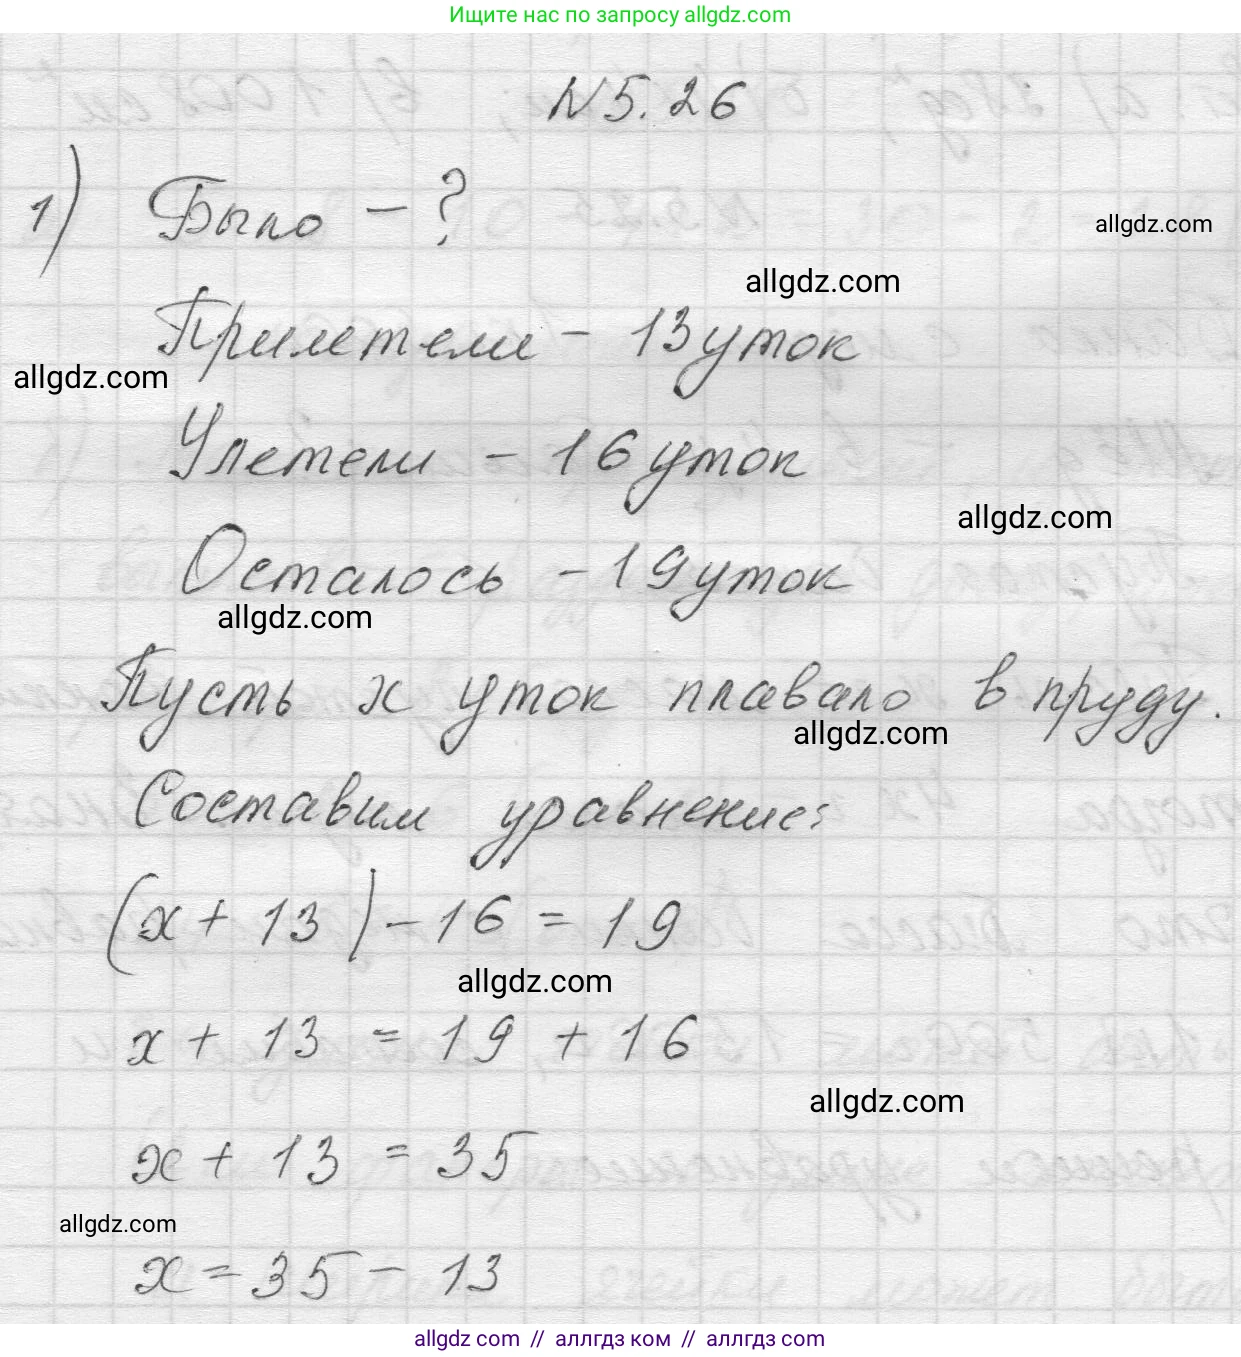 Ищите нас по запросу allgdz.com
N 5.26
1) Было – ?
allgdz.com
allgdz.com
Прилетели – 13 уток
allgdz.com
Улетели – 16 уток
allgdz.com
Осталось – 19 уток
allgdz.com
Пусть x уток плавало в пруду.
allgdz.com
Составим уравнение:
(x + 13) – 16 = 19
allgdz.com
x + 13 = 19 + 16
allgdz.com
x + 13 = 35
allgdz.com
x = 35 – 13
allgdz com // аллгдз ком // аллгдз com